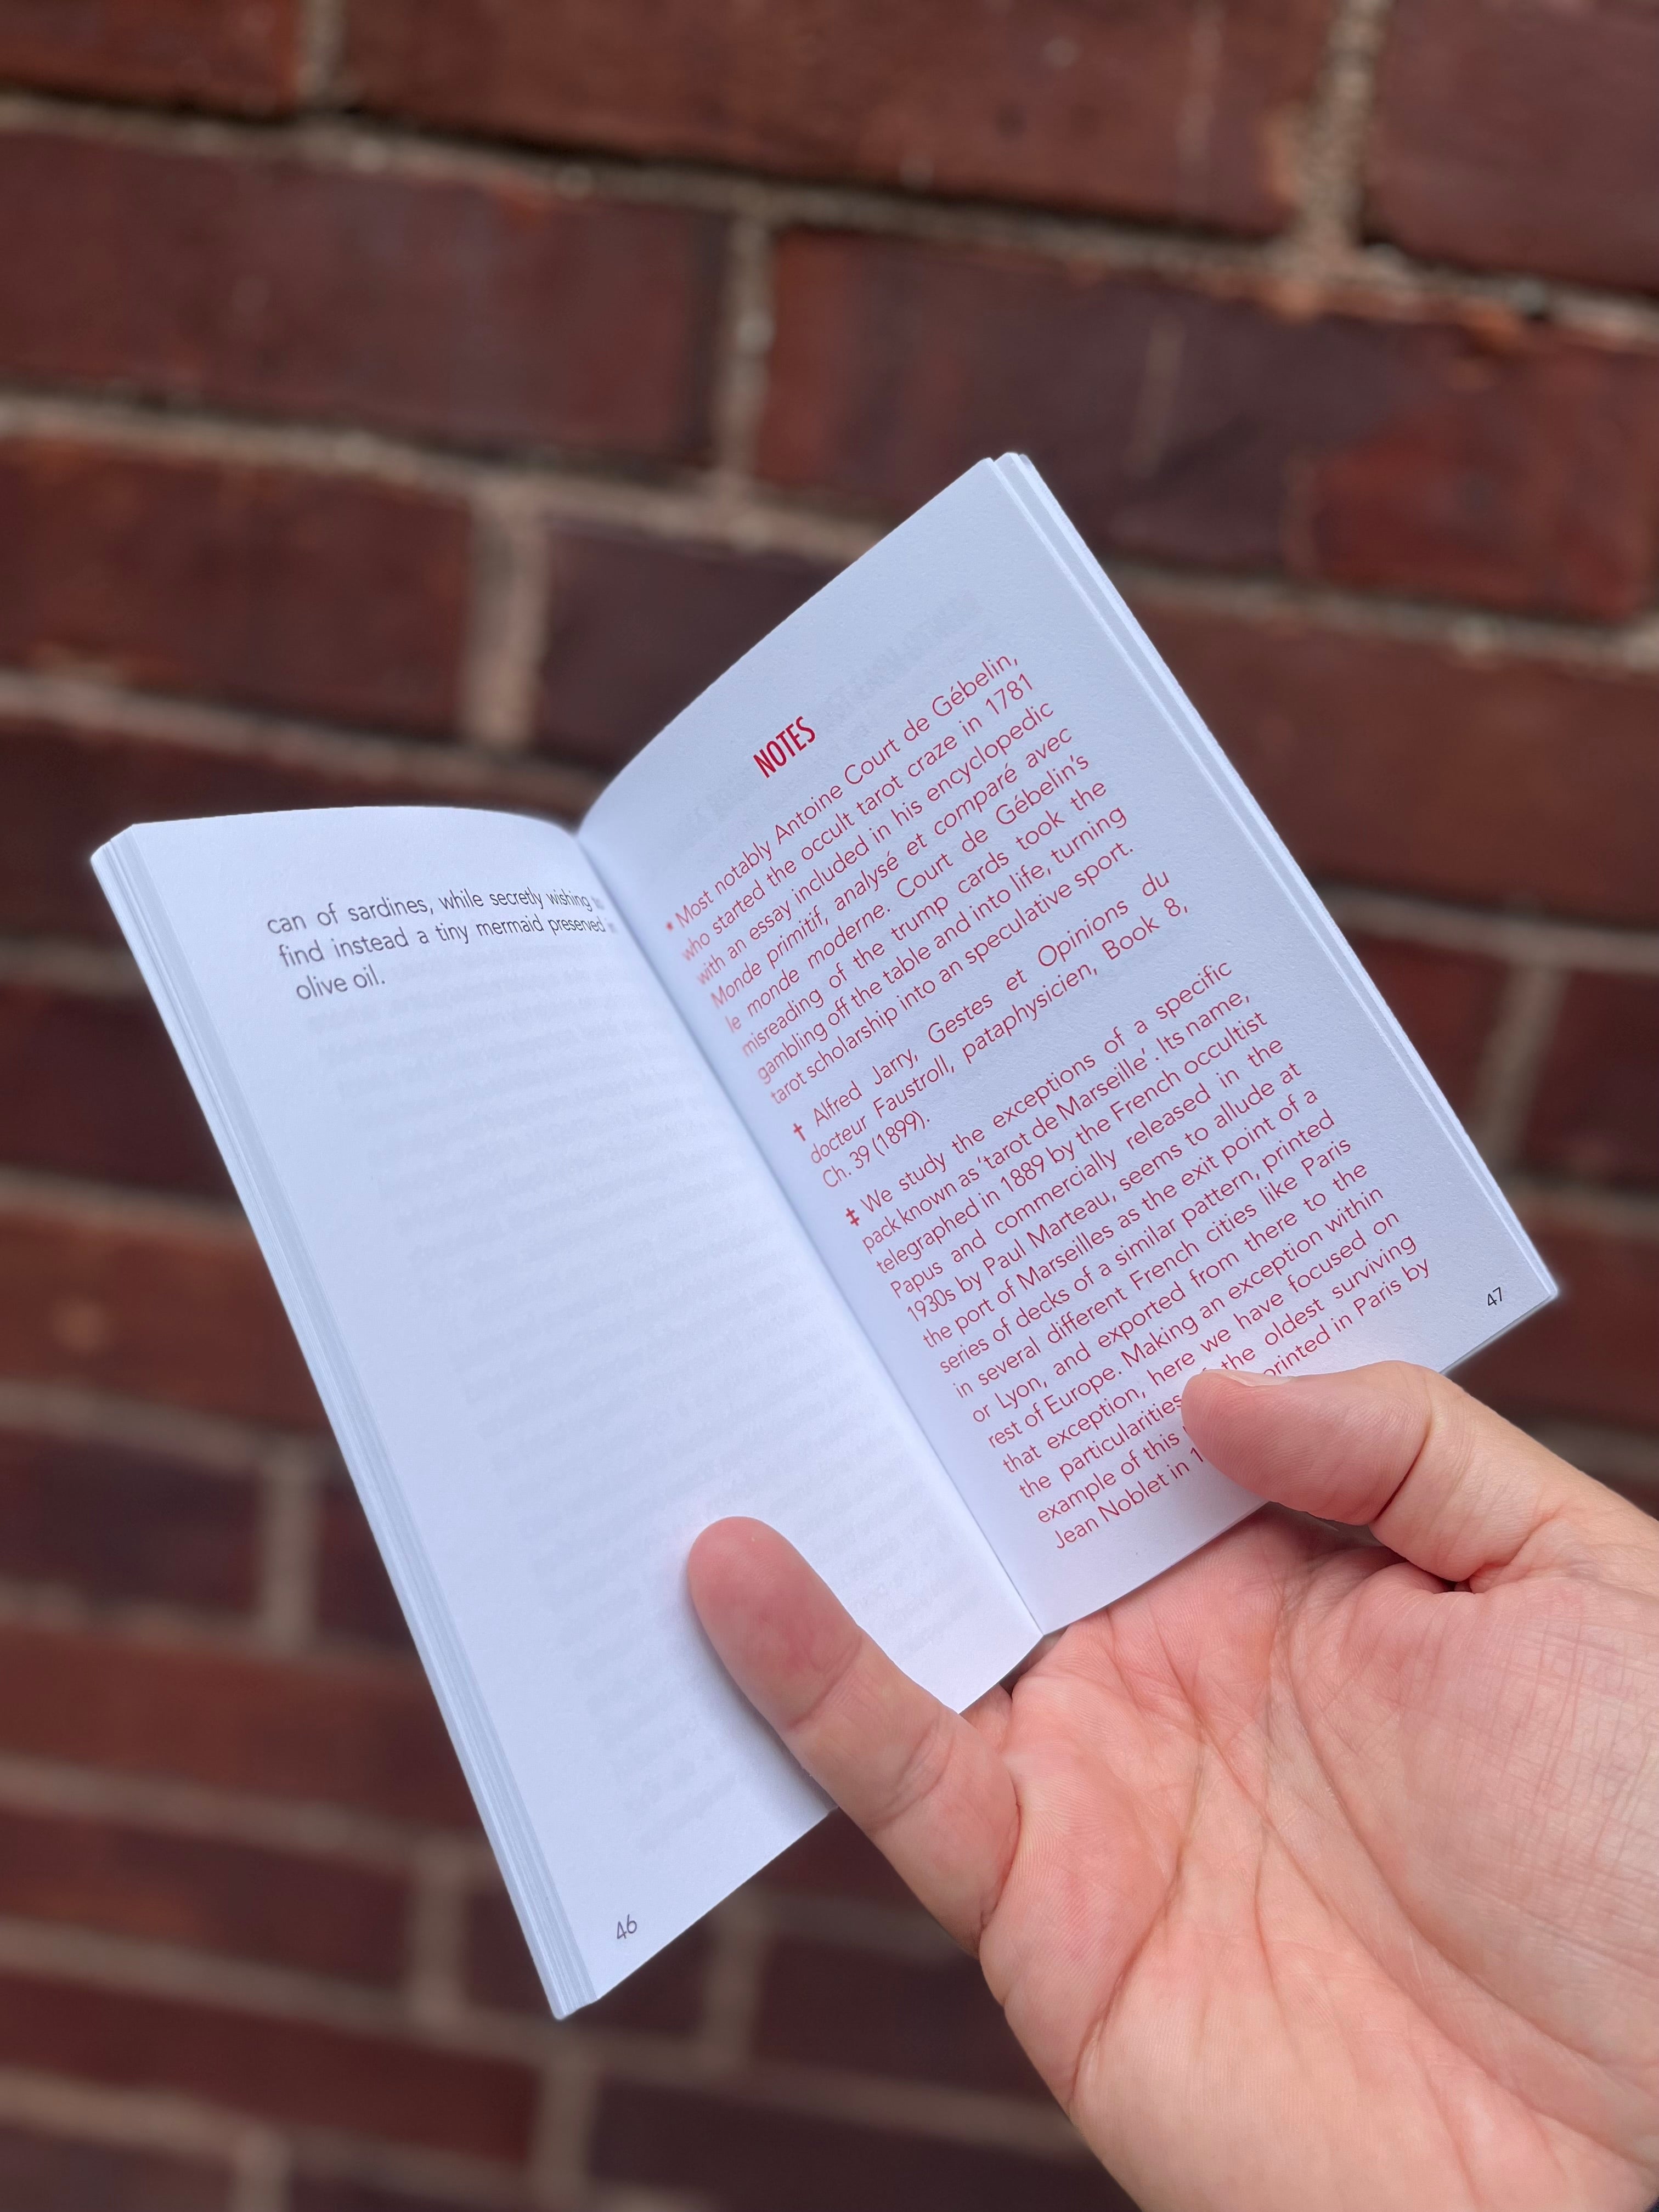 can of sardines, while secretly wishing
find instead a tiny mermaid preserved
olive oil.
46
NOTES
* Most notably Antoine Court de Gébelin,
who started the occult tarot craze in 1781
with an essay included in his encyclopedic
Monde primitif, analysé et comparé avec
le monde moderne. Court de Gébelin's
misreading of the trump cards took the
gambling off the table and into life, turning
tarot scholarship into an speculative sport.
† Alfred Jarry, Gestes et Opinions du
docteur Faustroll, pataphysicien, Book 8,
Ch. 39 (1899).
‡ We study the exceptions of a specific
pack known as 'tarot de Marseille'. Its name,
telegraphed in 1889 by the French occultist
Papus and commercially released in the
1930s by Paul Marteau, seems to allude at
the port of Marseilles as the exit point of a
series of decks of a similar pattern, printed
in several different French cities like Paris
or Lyon, and exported from there to the
rest of Europe. Making an exception within
that exception, here we have focused on
the particularities the oldest surviving
example of this printed in Paris by
Jean Noblet in
47